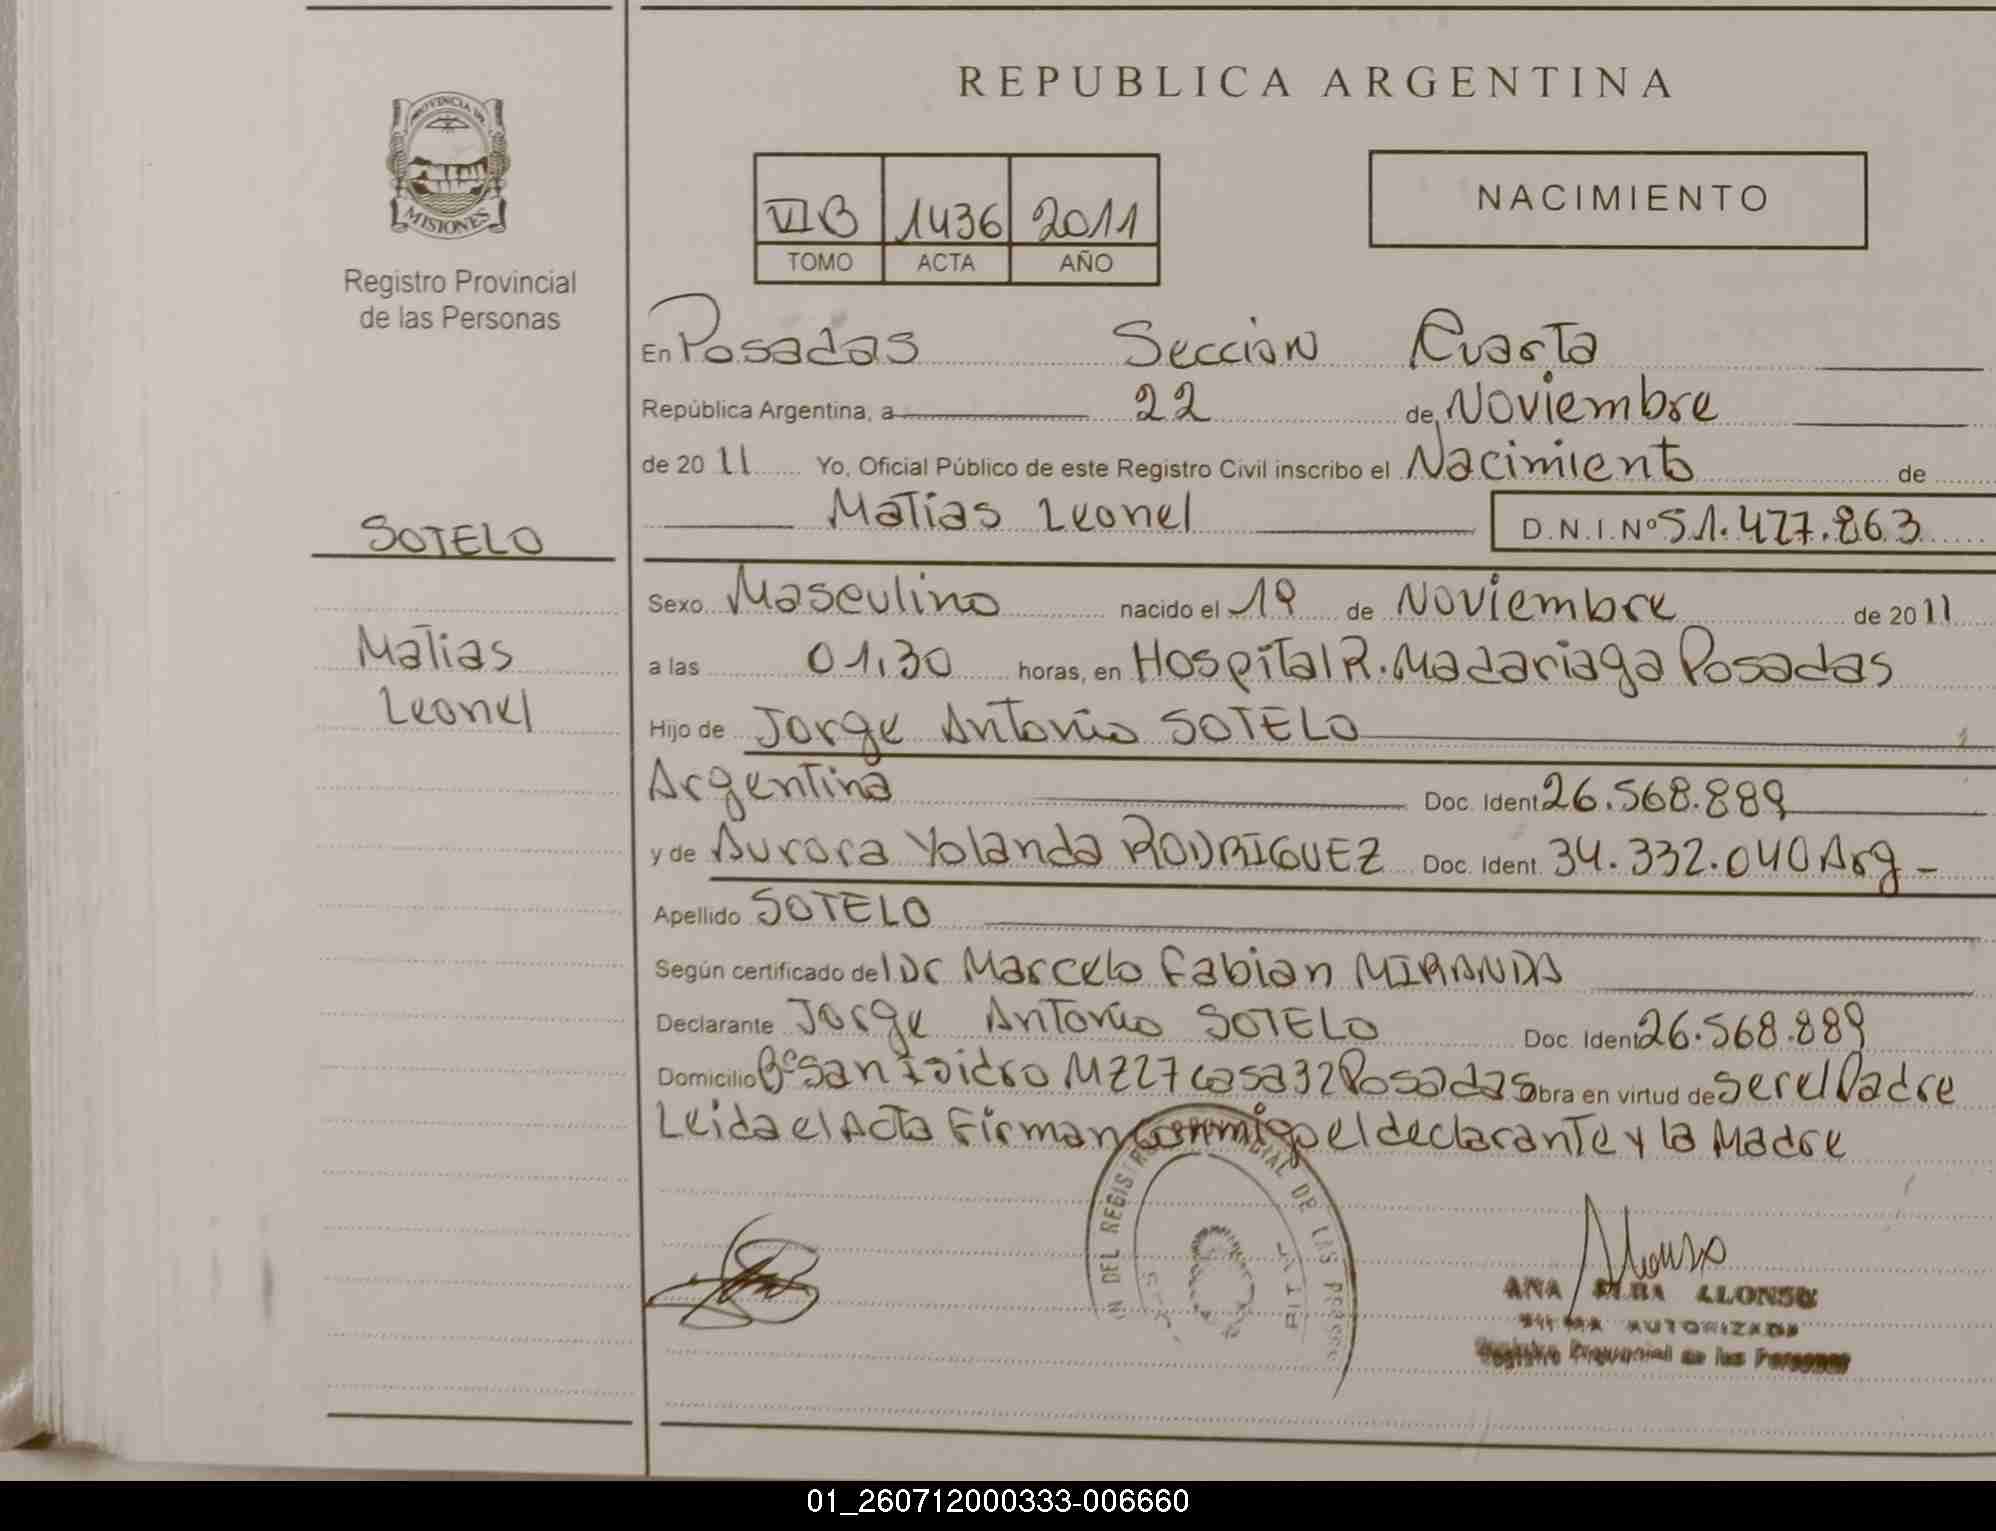 REPUBLICA ARGENTINA
PROVINCIA DE
MISIONES
Registro Provincial
de las Personas
VI B 1436 2011
TOMO ACTA AÑO
NACIMIENTO
En Posadas Seccion Cuarta
República Argentina, a 22 de Noviembre
de 2011 Yo, Oficial Público de este Registro Civil inscribo el Nacimiento de
Matias Leonel D.N.I.Nº 51.477.863
SOTELO
Matias
Leonel
Sexo Masculino nacido el 19 de Noviembre de 2011
a las 01,30 horas, en Hospital R. Madariaga Posadas
Hijo de Jorge Antonio SOTELO
Argentina Doc. Ident 26.568.889
y de Aurora Yolanda RODRIGUEZ Doc. Ident. 34.332.040 Arg -
Apellido SOTELO
Según certificado del Dr Marcelo Fabian MIRANDA
Declarante Jorge Antonio SOTELO Doc. Ident 26.568.889
Domicilio Bº San Isidro MZ27 casa 32 Posadas obra en virtud de Ser el Padre
Leida el Acta Firman conmigo el declarante y la Madre
DEL REGISTRO PROVINCIAL DE LAS PERSO
ANA ALBA ALONSO
FIRMA AUTORIZADA
Registro Provincial de las Personas
01_260712000333-006660